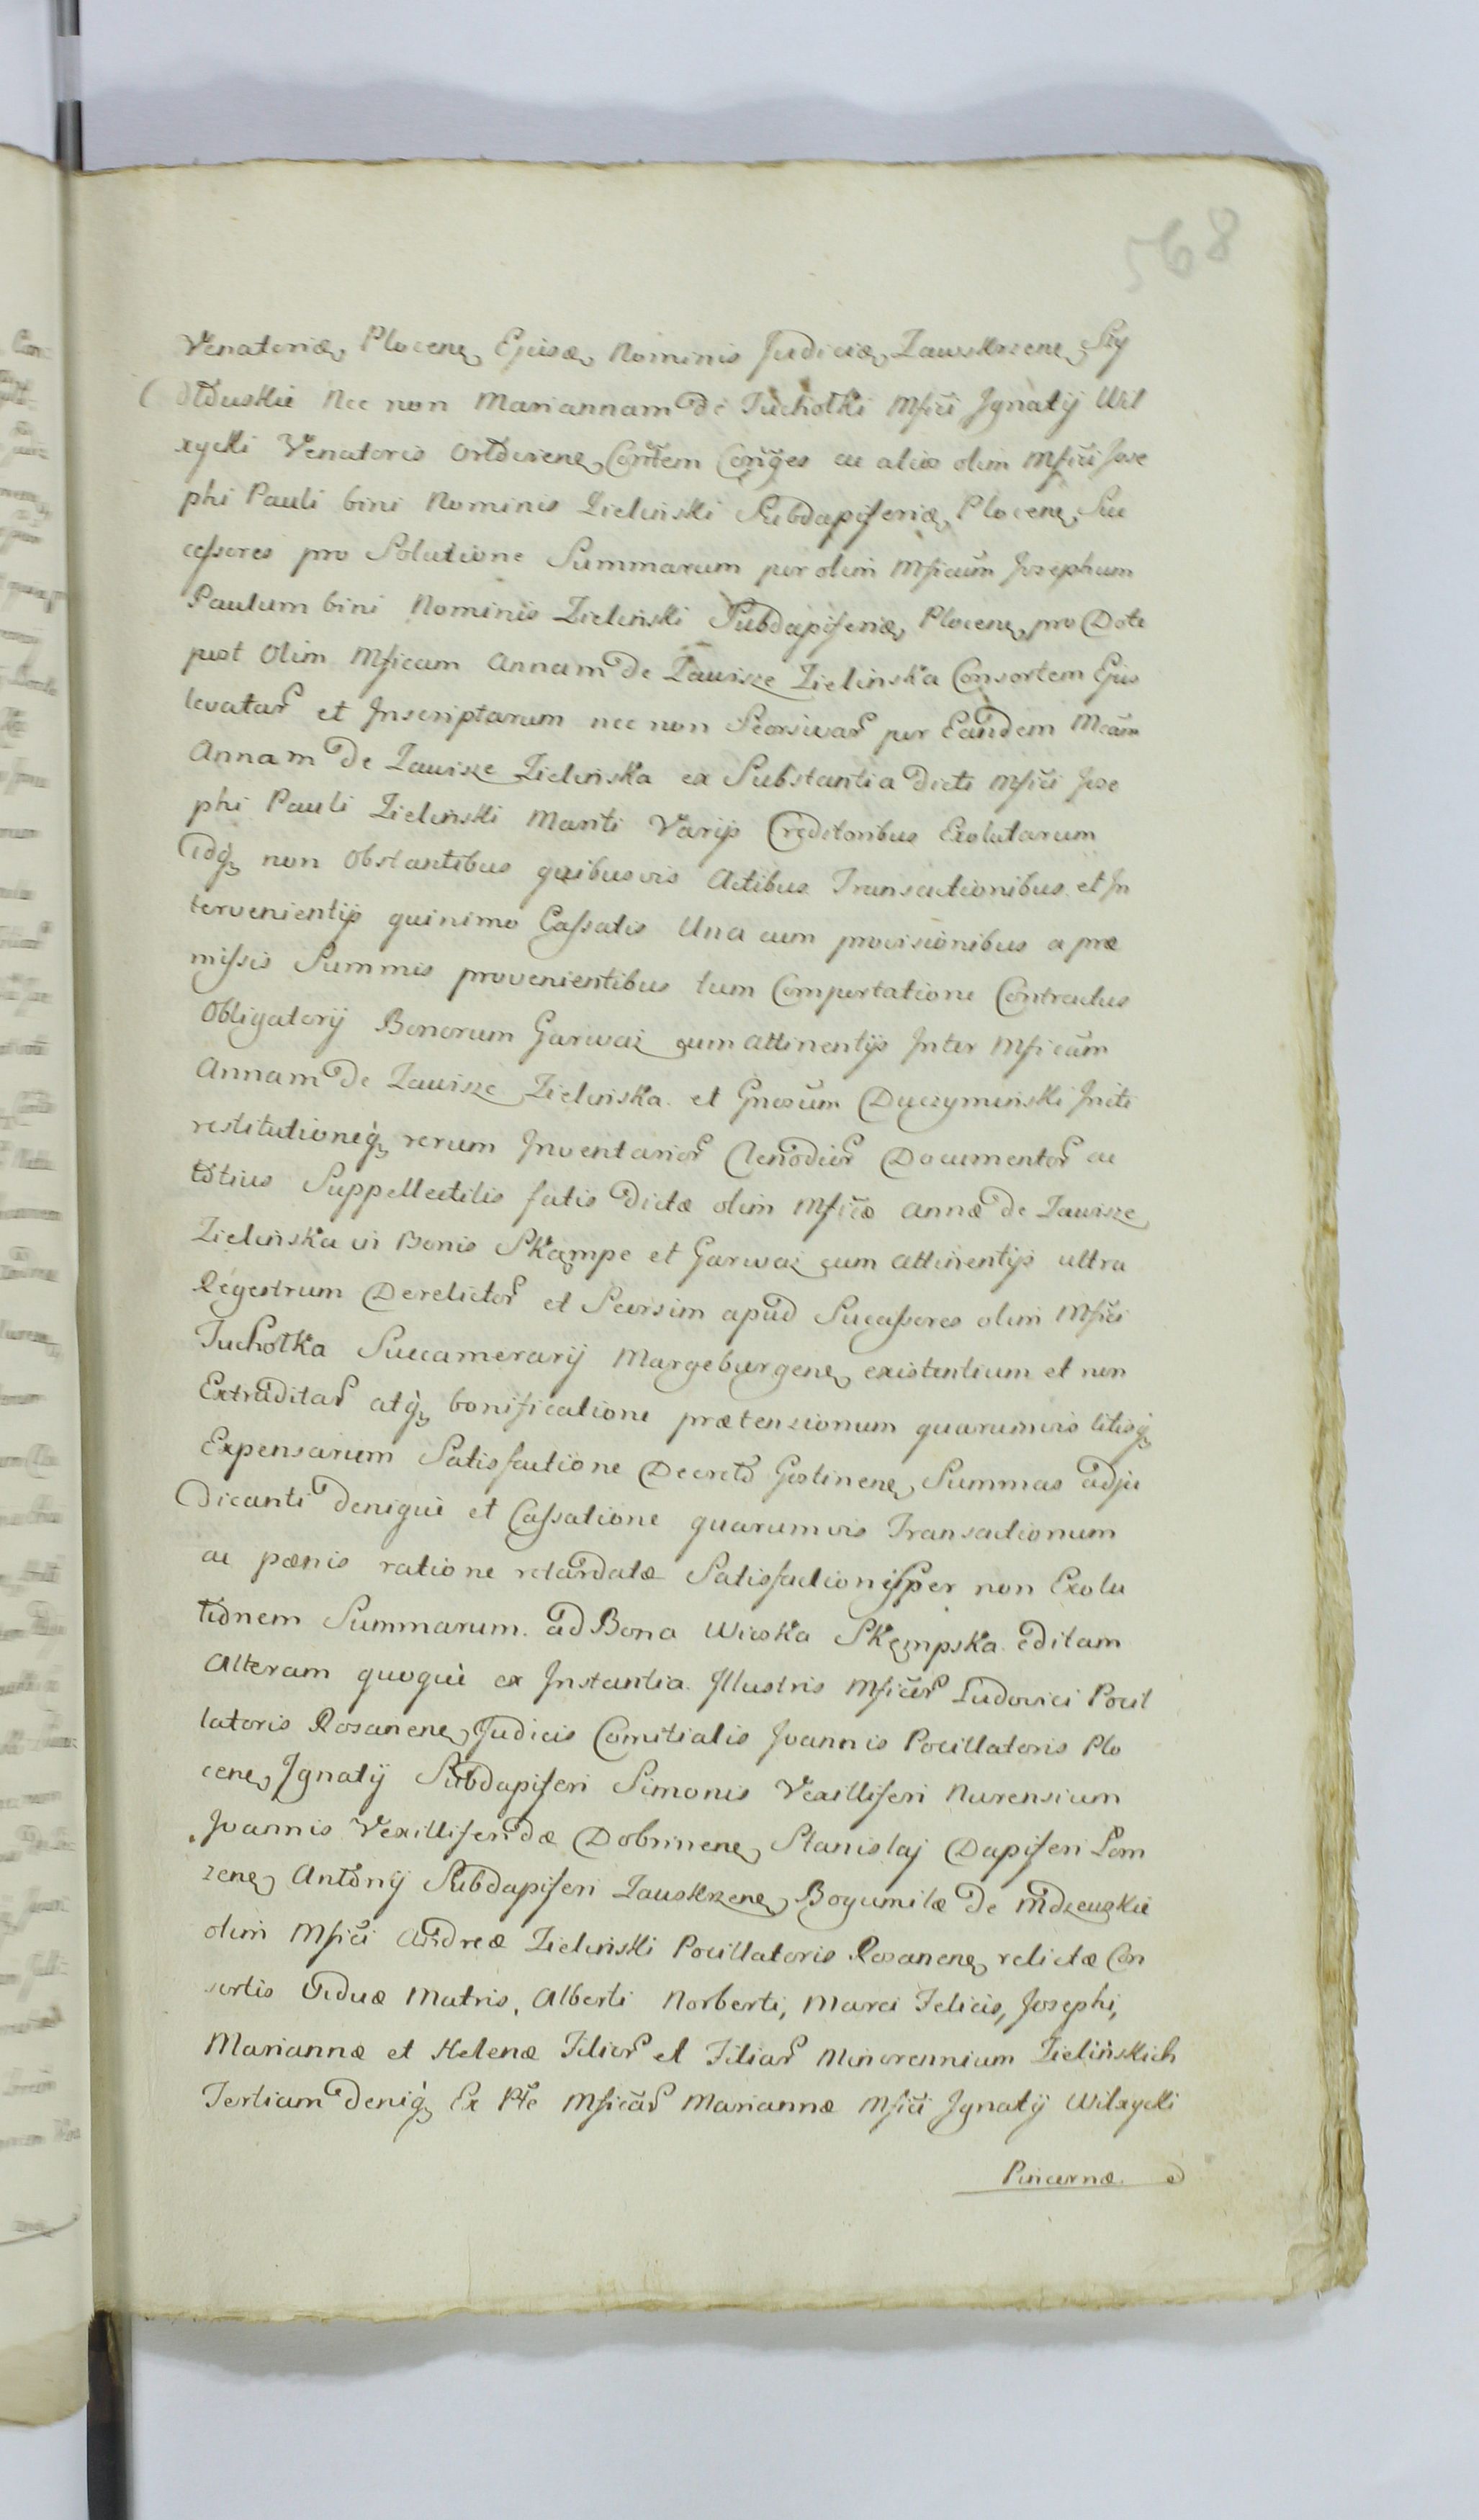 568
Venatoridæ Plocenẽ Ejusdẽ Nominis Judicidæ Zawskrzenẽ Szy
dłowskie Nec non Mariannam de Tuchołki Mfici Jgnatij Wil
xycki Venatoris Orłovienẽ Consortem Conjuges ac alios olim Mfici Jose
phi Pauli bini Nominis Zieliński Subdapiferidæ Plocenẽ Suc
cessores pro Solutione Summarum per olim Mficum Josephum
Paulum bini Nominis Zieliński Subdapiferidæ Plocenẽ pro Dote
post Olim Mficam Annam de Zawisze Zielińska Consortem Ejus
levatar et Jnscriptarum nec non Seorsivar per Eandem Mcam
Annam de Zawisze Zielińska ex Substantia dicti Mfici Jose
phi Pauli Zieliński Mariti Varijs Creditoribus Exolutarum
idq non Obstantibus quibusvis Actibus Transactionibus et Jn
tervenientijs quinimo Cassatis Una cum provisionibus a præ
missis Summis provenientibus tum Comportatione Contractus
Obligatorij Bonorum Garwaz cum attinentijs Jnter Mficam
Annam de Zawisze Zielińska et Gnosum Duczymiński Jniti
restitutioneq rerum Jnventarior Clenodior Documentor ac
totius Suppellectilis fatis dictæ olim Mficæ Annæ de Zawisze
Zielińska in Bonis Skąmpe et Garwaz cum attinentijs ultra
Regestrum Derelictor et Seorsim apud Sucessores olim Mfici
Tuchołka Succamerarij Margeburgenẽ existentium et non
Extraditar atq bonificatione prætensionum quarumvis litisq
Expensarum Satisfactione Decreto Gostinenẽ Summas adju
dicanti denique et Cassatione quarumvis Transactionum
ac pœnis ratione retardatæ Satisfactionis per non Exolu
tionem Summarum ad Bona Wioska Skempska editam
Alteram quoque ex Jnstantia Jllustris Mficor Ludovici Pocil
latoris Rosanenẽ Judicis Comitialis Joannis Pocillatoris Plo
cenẽ Jgnatij Subdapiferi Simonis Vexilliferi Nurensium
Joannis Vexilliferidæ Dobrinenẽ Stanislaj Dapiferi Lom
zenẽ Antonij Subdapiferi Zauskrzenẽ Bogumilæ de Mdzewskie
olim Mfici Andreæ Zieliński Pocillatoris Rosanenẽ relictæ Con
sortis Viduæ Matris, Alberti Norberti, Marci Felicis, Josephi,
Mariannæ et Helenæ Filior et Filiar Minorennium Zielińskich
Tertiam deniq Ex Pte Mficar Mariannæ Mfici Jgnatij Wilxycki
Pincernæ